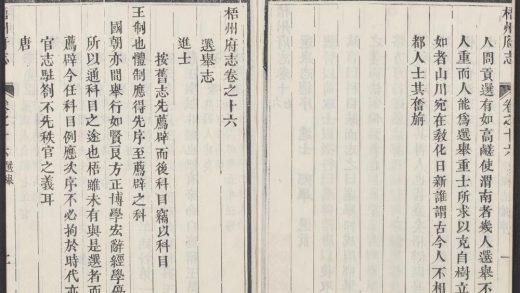 梧州府志 卷之十六
人問貢選有如高鹺使渭南者幾人選舉不
人重而人能為選舉重士所求以克自樹立
如者山川宛在教化日新誰謂古今人不相
都人士其奮旃
梧州府志卷之十六
選舉志
進士
按舊志先薦辟而後科目竊以科目
王制也體制應得先序至薦辟之科
國朝亦間舉行如賢良方正博學宏辭經學優
所以通科目之途也梧雖未有與是選者而
薦辟今任科目例應次序不必拘於時代亦
官志劄不先秩官之義耳
唐
卷之十六 選舉 一